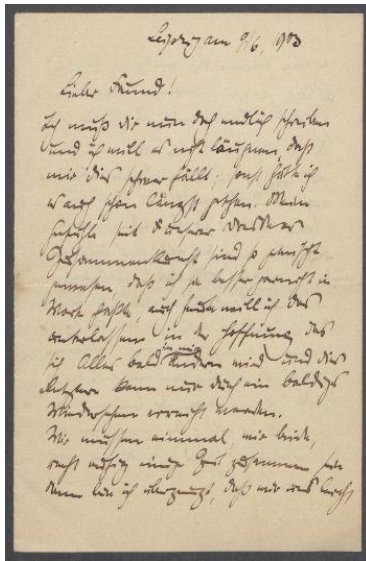 Leipzig am 9/6, 1903
Lieber Freund!
Ich muß dir nun doch endlich schreiben
und ich will es nicht läugnen, daß
mir dies schwer fällt, sonst hätte ich
es auch schon längst gethan. Meine
Gefühle seit unserer Dresdner
Zusammenkunft sind so gemischt
gewesen, daß ich sie besser garnicht in
Worte faßte, auch heute will ich das
unterlassen in der Hoffnung das
sich Alles bald in mir ändern wird und dies
Letztere kann nur durch ein baldiges
Wiedersehen erreicht werden.
Wir müssen einmal, wir beide,
recht ruhig einige Zeit zusammen sein
dann bin ich überzeugt, daß wir uns leicht